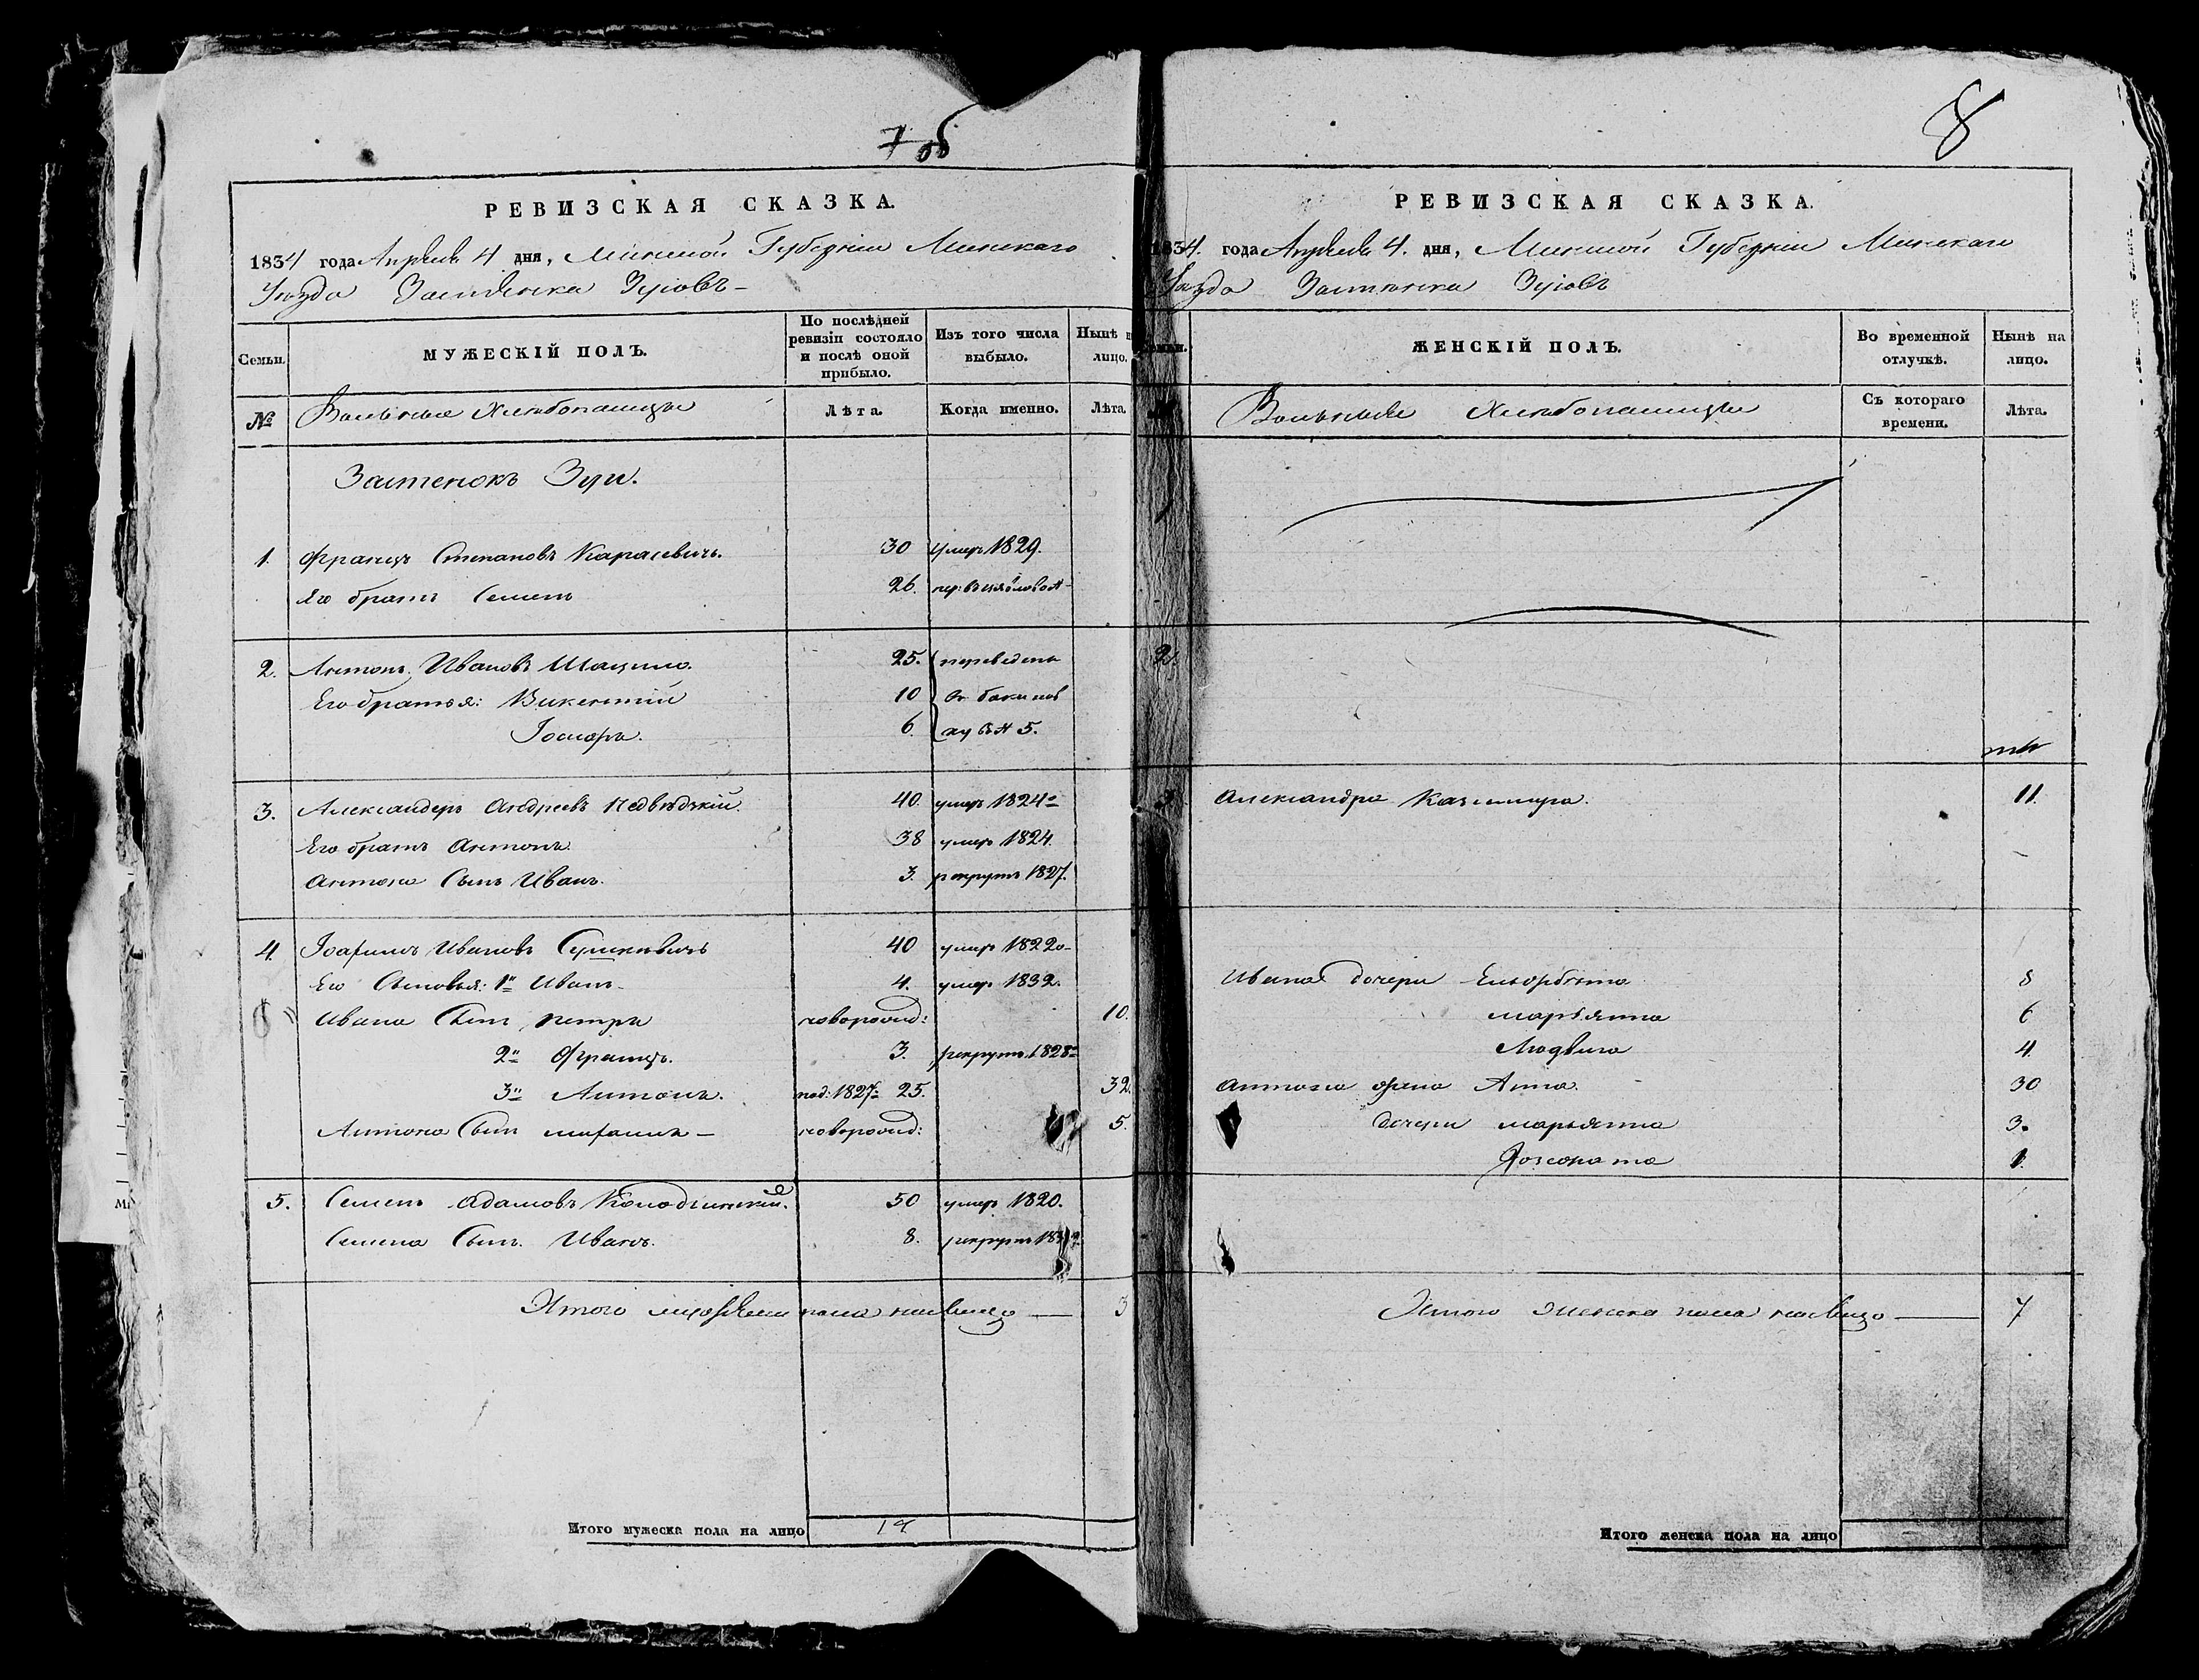 7 об
РЕВИЗСКАЯ СКАЗКА.
1834 года Апреля 4 дня, Минской Губерніи Минскаго
Уезда Застѣнка Зуіовъ
Семьи.
МУЖЕСКІЙ ПОЛЪ.
По послѣдней ревизіи состояло и послѣ оной прибыло.
Изъ того числа выбыло.
Нынѣ на лицо.
№
Вольные Хлебопашцы
Лѣта.
Когда именно.
Лѣта.
Застенокъ Зуи.
1. Францъ Степановъ Карасевичъ. 30 умеръ 1829.
Его братъ Семенъ 26.
2. Антонъ Ивановъ 25. переведены
Его братья: Викентій 10
Іосифъ. 6. 5.
3. Александеръ Андреевъ Недвѣдзкій 40. умеръ 1824
Его братъ Антонъ 38 умеръ 1824.
Антона Сынъ Иванъ. 3. рекрутъ 1827.
4. Іоахимъ Ивановъ 40 умеръ 1822
Его Сыновья: 1й Иванъ 4. умеръ 1832.
Ивана Сынъ Петръ новорожд: 10.
2й Францъ. 3. рекрутъ 1828
3й Антонъ. 1827 25. 32.
Антона Сынъ новорожд: 5.
5. Семенъ Адамовъ Колодзинскій. 50 умеръ 1820.
Семена Сынъ Иванъ. 8. рекрутъ
Итого мужеска пола на лицо 3
Итого мужеска пола на лицо
8
РЕВИЗСКАЯ СКАЗКА.
1834. года Апреля 4. дня, Минской Губерніи Минскаго
Уезда Застѣнка Зуіовъ
ЖЕНСКІЙ ПОЛЪ.
Во временной отлучкѣ.
Нынѣ на лицо.
Вольные Хлебопашцы
Съ котораго времени.
Лѣта.
2.
3. Александра 11.
Ивана дочери Ельзбѣта 8
Марьянна 6
Людвига 4.
Антона жена Анна. 30
дочери Марьянна 3.
1.
Итого женска пола на лицо 7
Итого женска пола на лицо